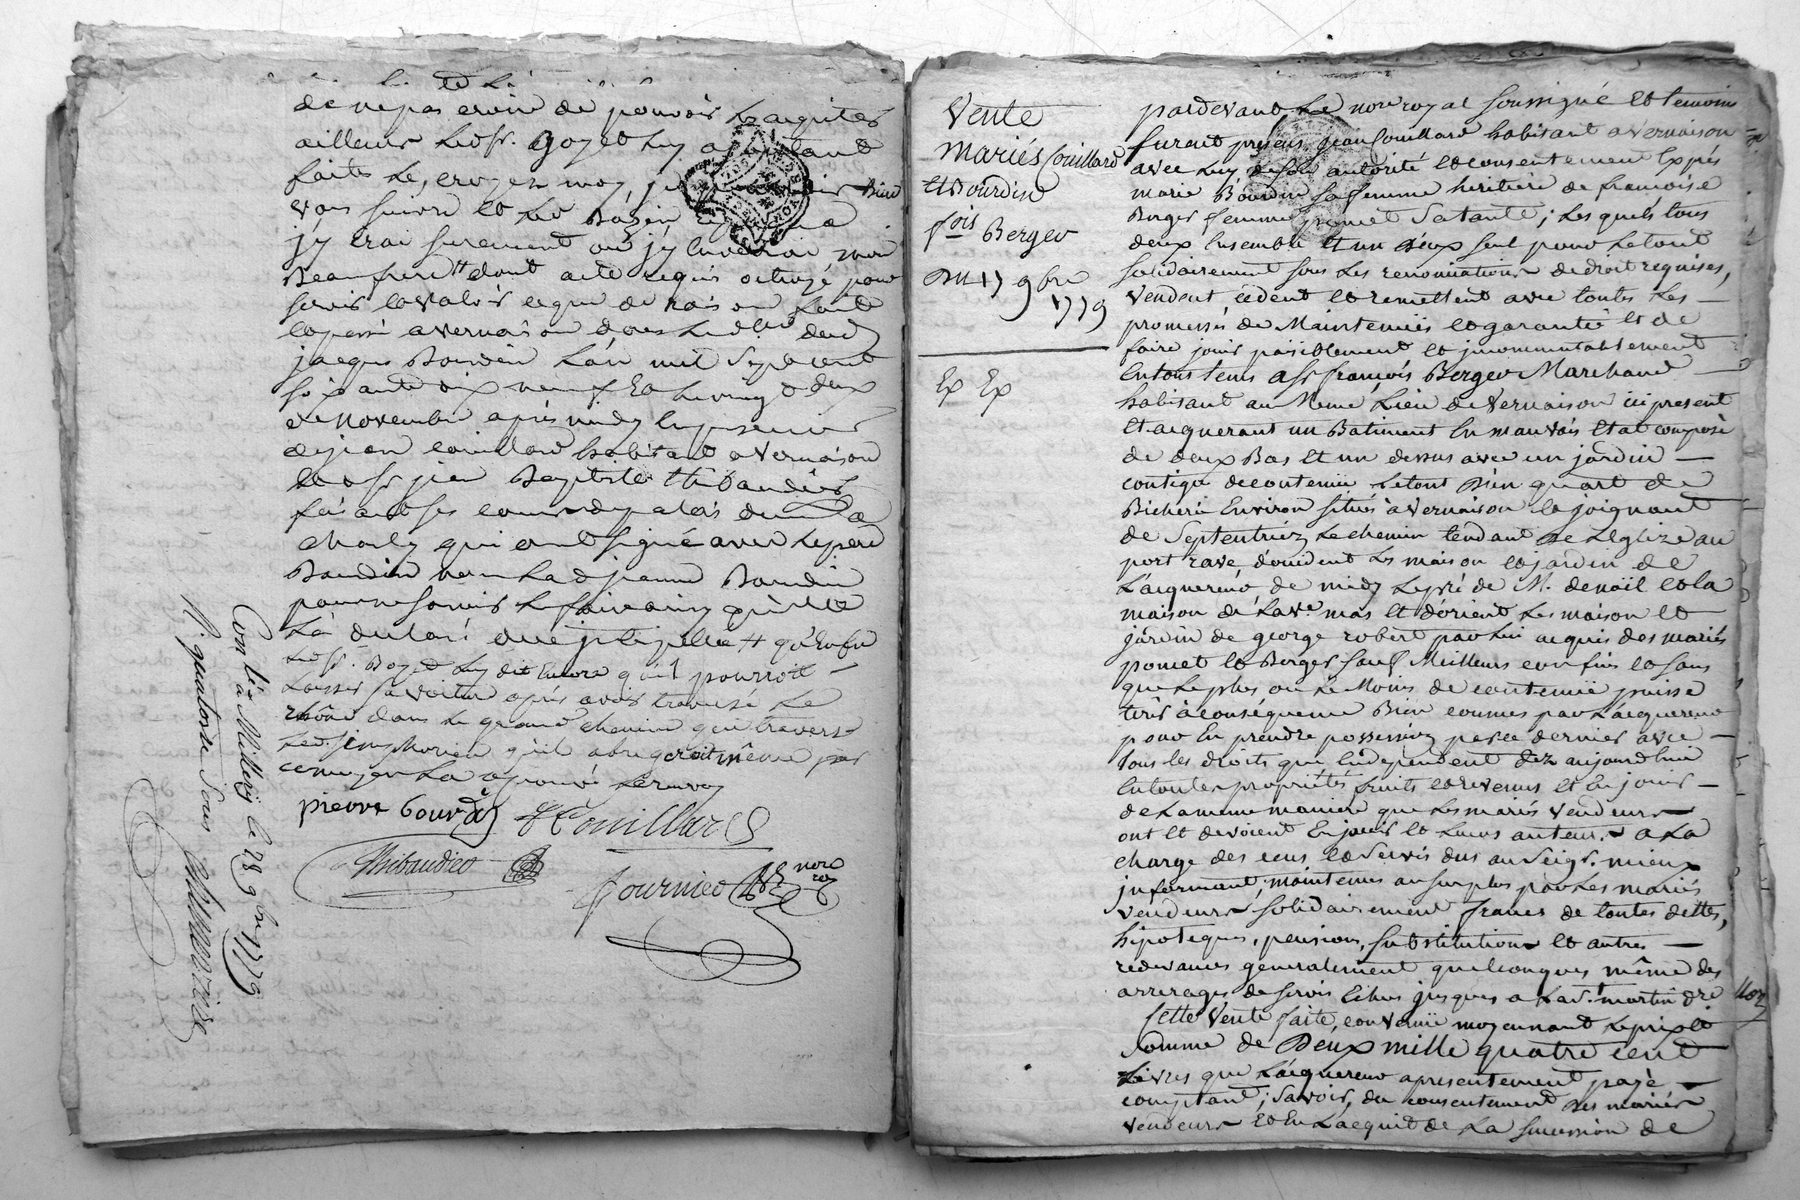 de ne pas croire de pouvoir
ailleurs led. sr. Goyet luy
faites le, croyez moy, je Bien
vous suivre et led Bazin
j'y irai surement ou j'y enverrai mon
Beaufrere dont acte requis octroyé pour
servir et valoir ce que de raison fait
et passé a vernaison dans le dud
jacques Bourdin L'an mil sept cent
soixante dix neuf Et le vingt deux
de Novembre après midy En presence
de jean couillard habitant a Vernaison
et de sr jean Baptiste Thibaudier
charly qui ont signé avec le pere
Bourdin non lad jeanne Bourdin
pour ne savoir le faire ainsy qu'elle
L'a declaré qu'enfin
led sr. Goyet luy dit Encore qu'il pourroit
Laisser sa voiture après avoir traversé Le
rhône dans le grand chemin qui traverse
simphorien qu'il abregeroit même par
ce moyen
pierre bourdin Couillard
Thibaudier fournier nore
Conlé a Millery le 28 9bre 1779
R. quatorze sous
Vente
Mariés Couillard
Et Bourdin
fois Berger
Du 17 9bre
1779
Ex Ex
pardevant Le nore royal soussigné et temoins
furent présens jean Couillard habitant a Vernaison
avec luy de son autorité et consentement Exprès
marie Bourdin sa femme heritiere de françoise
Berger femme pomet sa tante; Les quels tous
deux Ensemble et un d'eux seul pour Le tout
solidairement sous Les renonciations de droit requises,
vendent, cèdent et remettent avec toutes Les —
promesses de Maintenüe et garantie et de
faire jouir paisiblement et incommutablement
En tous tems a sr françois Berger Marchand —
habitant au Meme Lieu de Vernaison ici present
Et acquerant un Batiment En mauvais Etat composé
de deux Bas Et un dessus avec un jardin —
contigu de contenüe Le tout d'un quart de
Bicherée Environ situés à Vernaison et joignant
de Septentrion Le chemin tendant de L'Eglize au
port ravé, d'occident Les maison et jardin de
L'acquereur, de midy Le pré de M. denoil et la
maison de La ve. mas et d'orient Les maison et
jardin de george robert par Lui acquis des mariés
pomet et Berger sauf Meilleurs confins et sans
que Le plus ou Le Moins de contenüe puisse
tirer à conséquence Bien connus par L'acquereur
pour En prendre possession passée dernier avec —
tous les droits qui En dependent dez aujourdhui
En toutes propriétés fruits et revenus et En jouir —
de La meme maniere que Les mariés vendeurs
ont et devoient En jouir et Leurs auteurs a La
charge des cens et servis dus au Seigr. mieux
informant; maintenus au surplus par Les mariés
vendeurs solidairement francs de toutes dettes,
hipoteques, pensions, substitutions et autres —
redevances generalement quelconques même des
arrerages de servis Echus jusques a La St. martin dre
Cette vente faite, convenüe moyennant Le prix et
somme de Deux mille quatre cent
Livres que L'acquereur a presentement payé —
comptant; savoir, du consentement des mariés
vendeurs Et En L'acquit de La succession de